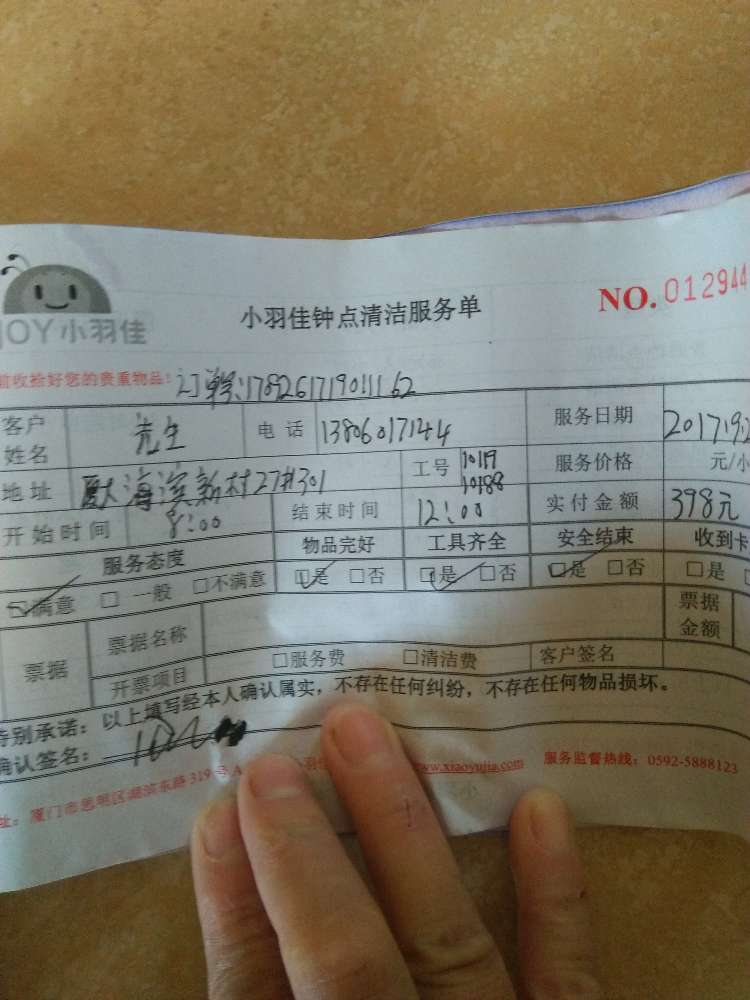 小羽佳钟点清洁服务单 NO. 012944
JOY小羽佳
前收拾好您的贵重物品! 订单号:178261719011162
客户姓名 先生 电话 13806017144 服务日期 2017.9.2
地址 厦大海滨新村27#301 工号 10119 10188 服务价格 元/小
开始时间 8:00 结束时间 12:00 实付金额 398元
服务态度 物品完好 工具齐全 安全结束 收到卡
☑满意 □一般 □不满意 ☑是 □否 ☑是 □否 ☑是 □否 □是
票据 票据名称 票据金额
开票项目 □服务费 □清洁费 客户签名
特别承诺:以上填写经本人确认属实,不存在任何纠纷,不存在任何物品损坏。
确认签名:
址:厦门市思明区湖滨东路319号A www.xiaoyujia.com 服务监督热线:0592-5888123